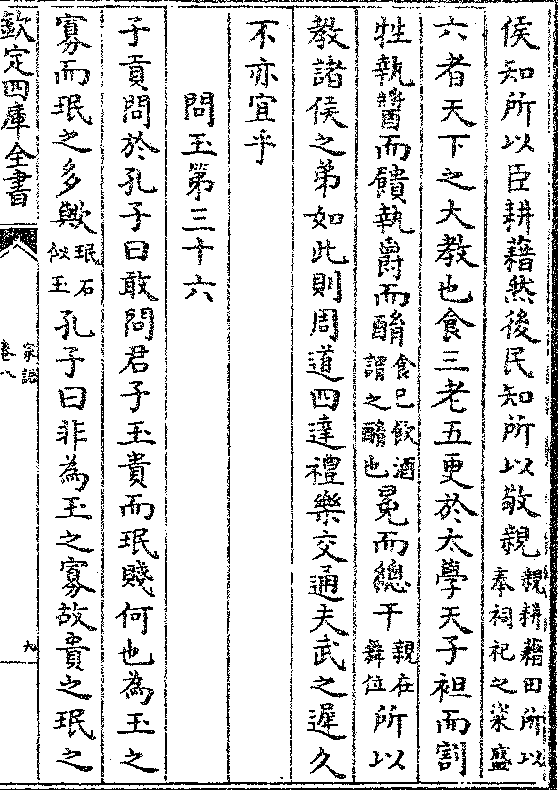 侯知所以臣耕藉然後民知所以敬親親耕藉田所以奉祠祀之粢盛
六者天下之大教也食三老五更於太學天子袒而割
牲執醬而饋執爵而酳食已飲酒謂之酳也冕而總干親在舞位所以
教諸侯之弟如此則周道四達禮樂交通夫武之遲久
不亦宜乎
問玉第三十六
子貢問於孔子曰敢問君子玉貴而珉賤何也為玉之
寡而珉之多歟珉石似玉孔子曰非為玉之寡故貴之珉之
欽定四庫全書
家語
卷八
九